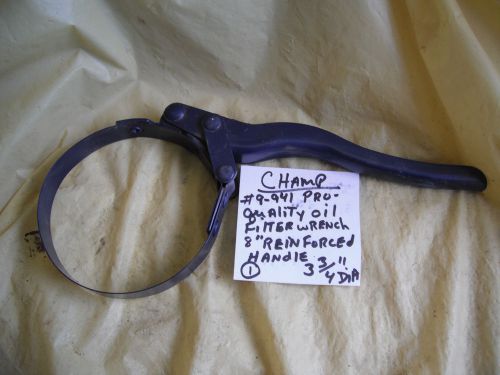 CHAMP
#9-941 PRO-
QUALITY OIL
FILTER WRENCH
8" REINFORCED
HANDLE
① 3 3/4" DIA